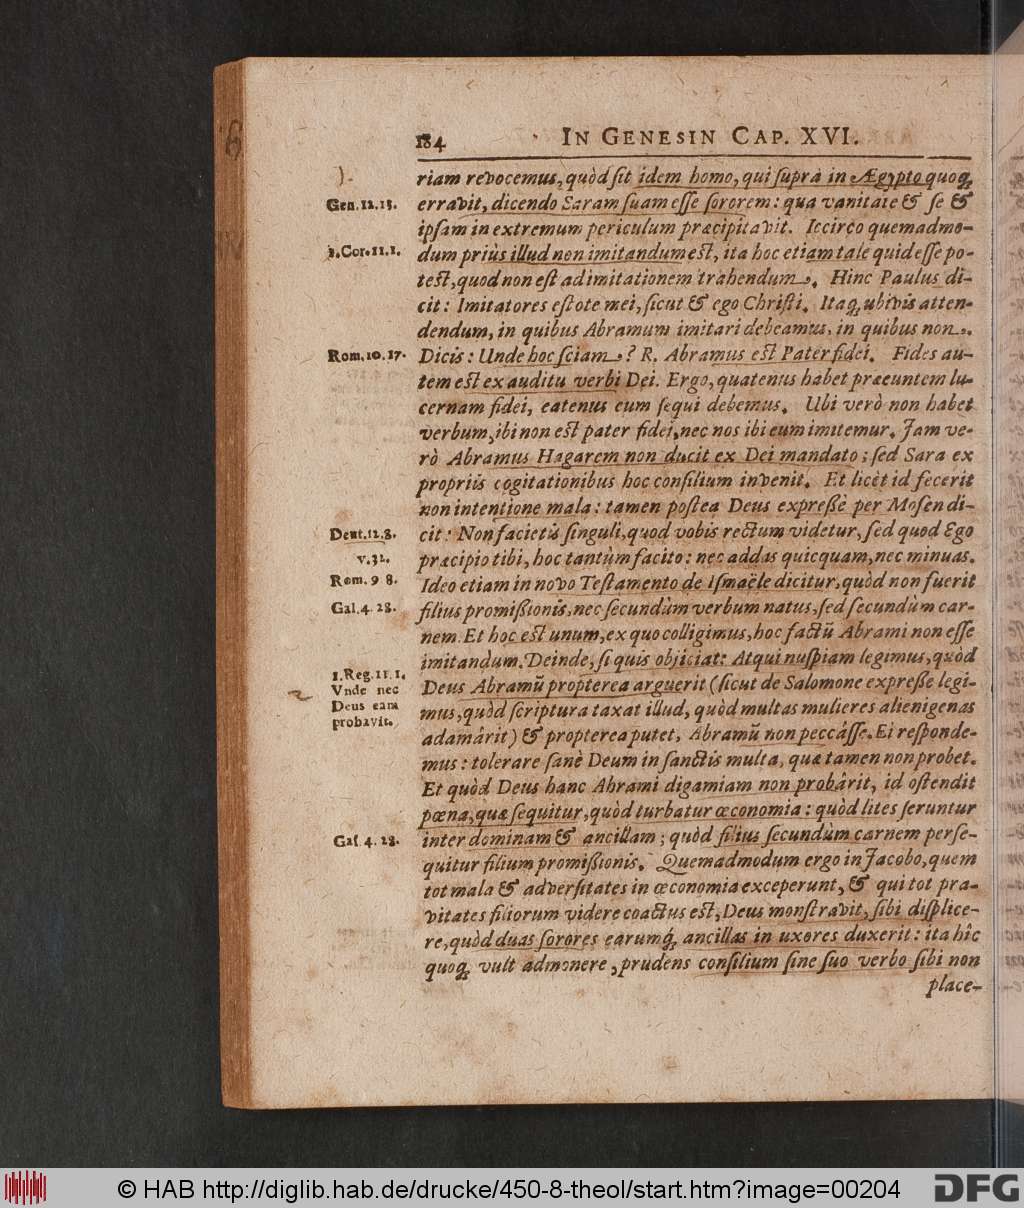 184
IN GENESIN CAP. XVI.
riam revocemus, quòd ſit idem homo, qui ſuprà in Ægypto quoq́;
Gen. 12. 13.
erravit, dicendo Saram ſuam eſſe ſororem: qua vanitate & ſe &
ipſam in extremum periculum præcipitavit. Iccirco quemadmo-
1. Cor. 11. 1.
dum priùs illud non imitandum eſt, ita hoc etiam tale quid eſſe po-
teſt, quod non eſt ad imitationem trahendum. Hinc Paulus di-
cit: Imitatores eſtote mei, ſicut & ego Chriſti. Itaq́; ubivis atten-
dendum, in quibus Abramum imitari debeamus, in quibus non.
Rom. 10. 17.
Dicis: Unde hoc ſciam? R. Abramus eſt Pater fidei. Fides au-
tem eſt ex auditu verbi Dei. Ergo, quatenus habet præeuntem lu-
cernam fidei, eatenus eum ſequi debemus. Ubi verò non habet
verbum, ibi non eſt pater fidei, nec nos ibi eum imitemur. Jam ve-
rò Abramus Hagarem non ducit ex Dei mandato; ſed Sara ex
propriis cogitationibus hoc conſilium invenit. Et licèt id fecerit
non intentione mala: tamen poſtea Deus expreßè per Moſen di-
Deut. 12. 8.
cit: Non facietis ſinguli, quod vobis rectum videtur, ſed quod Ego
v. 32.
præcipio tibi, hoc tantùm facito: nec addas quicquam, nec minuas.
Rom. 9 8.
Ideo etiam in novo Teſtamento de Iſmaële dicitur, quòd non fuerit
Gal. 4. 28.
filius promißionis, nec ſecundùm verbum natus, ſed ſecundùm car-
nem. Et hoc eſt unum, ex quo colligimus, hoc factū Abrami non eſſe
imitandum. Deinde, ſi quis objiciat: Atqui nuſpiam legimus, quòd
1. Reg. 11. 1.
Deus Abramū propterea arguerit (ſicut de Salomone expreße legi-
Vnde nec
Deus eam
probavit.
mus, quòd ſcriptura taxat illud, quòd multas mulieres alienigenas
adamârit) & propterea putet, Abramū non peccâſſe. Ei reſponde-
mus: tolerare ſanè Deum in ſanctis multa, quæ tamen non probet.
Et quòd Deus hanc Abrami digamiam non probârit, id oſtendit
pœna, quæ ſequitur, quòd turbatur œconomia: quòd lites ſeruntur
Gal. 4. 28.
inter dominam & ancillam; quòd filius ſecundùm carnem perſe-
quitur filium promißionis. Quemadmodum ergo in Jacobo, quem
tot mala & adverſitates in œconomia exceperunt, & qui tot pra-
vitates filiorum videre coactus eſt, Deus monſtravit, ſibi diſplice-
re, quòd duas ſorores earumq́; ancillas in uxores duxerit: ita hîc
quoq́; vult admonere, prudens conſilium ſine ſuo verbo ſibi non
place-
© HAB http://diglib.hab.de/drucke/450-8-theol/start.htm?image=00204
DFG